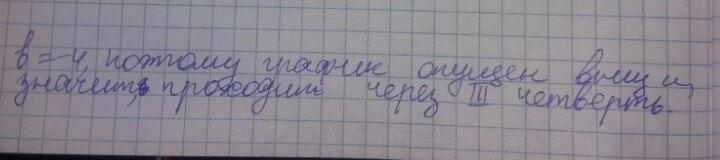 b=-4, поэтому график опущен вниз и,
значит, проходит через III четверть.